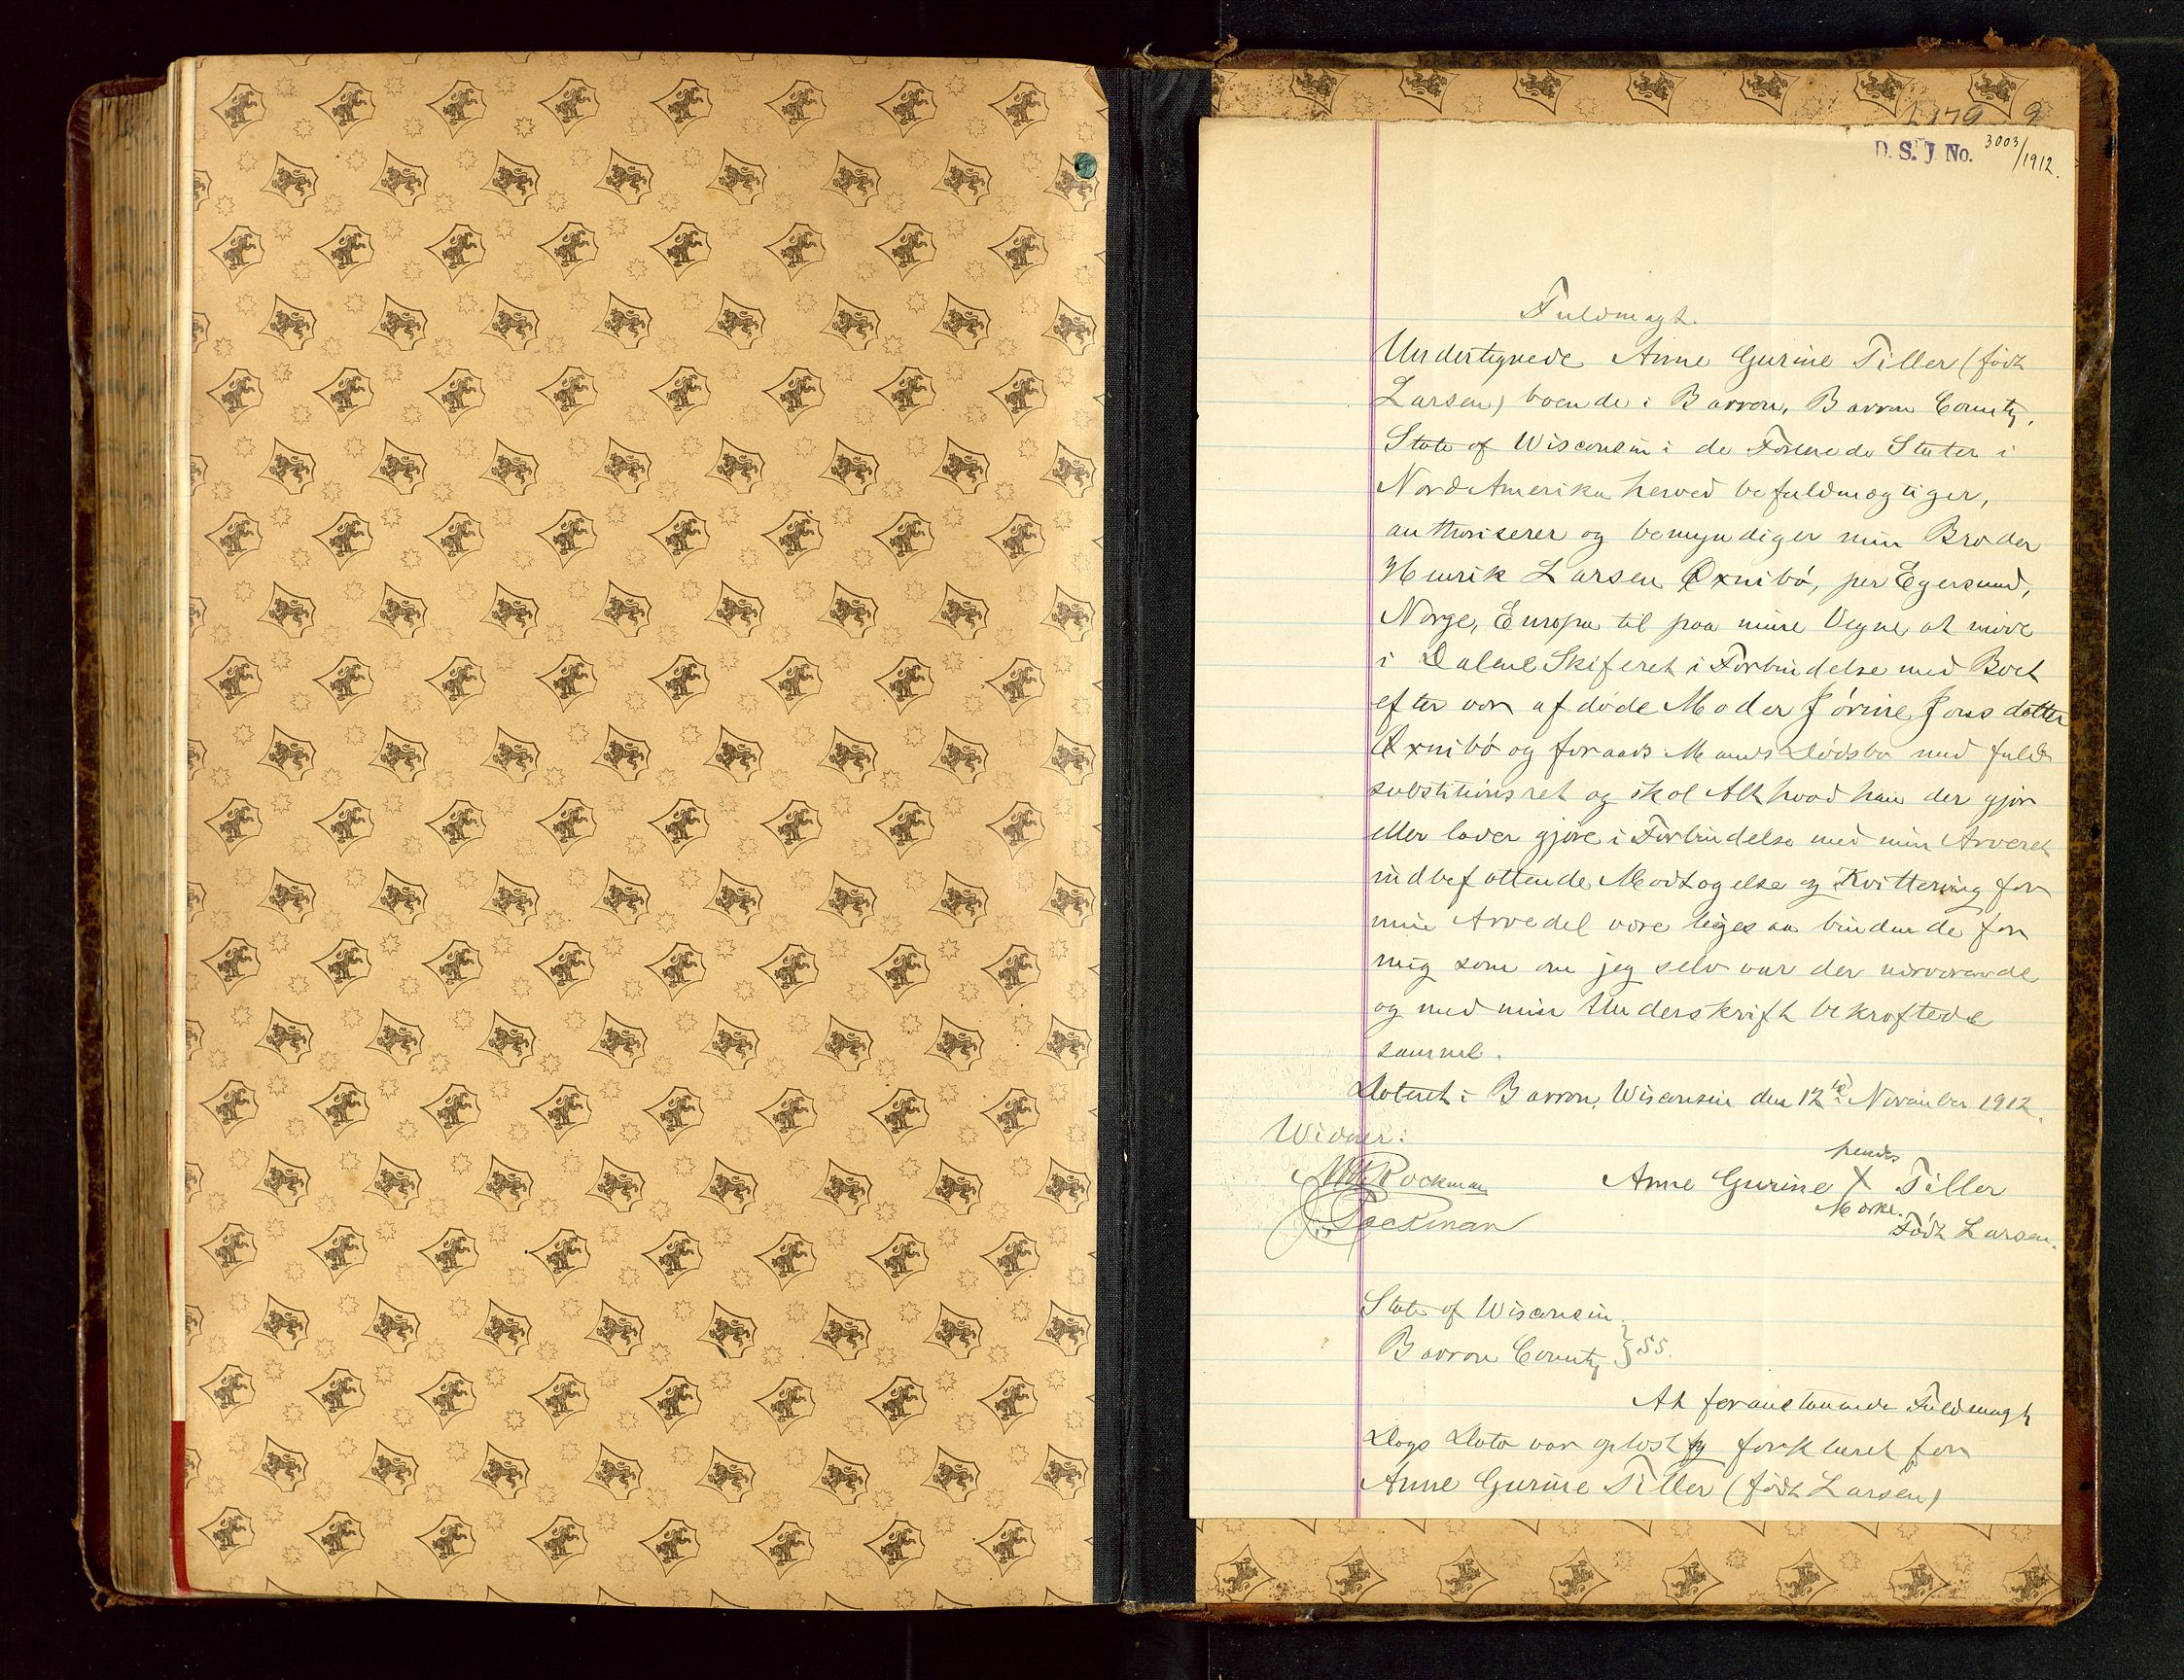 D. S. J. No. 3003/1912.
Fuldmagt.
Undertegnede Anne Gurine Tiller (født
Larsen) boende i Barron, Barron County,
State of Wisconsin i de Forenede Stater i
Nord Amerika herved befuldmægtiger,
authoriserer og bemyndiger min Broder
Henrik Larsen Oxnibø, per Egersund,
Norge, Europa til paa mine Vegne at møde
i Dalene Skifteret i Forbindelse med Boet
efter vor afdøde Moder Jørine Jonsdatter
Oxnibø og foraads Mands Dødsbo med fuld
substitionsret og skal Alt hvad han der gjør
eller lader gjøre i Forbindelse med min Arveret
indbefattende Modtagelse og Kvittering for
min Arvedel være ligesaa bindende for
mig som om jeg selv var der nærværende
og med min Underskrift bekræftede
samme.
Dateret i Barron, Wisconsin den 12te November 1912.
Vidner:
hendes
Rockman Anne Gurine X Tiller
Mærke.
Født Larsen.
State of Wisconsin
Barron County } SS.
At foranstaaende Fuldmagt
Dags Dato var oplæst og forklaret for
Anne Gurine Tiller (født Larsen)